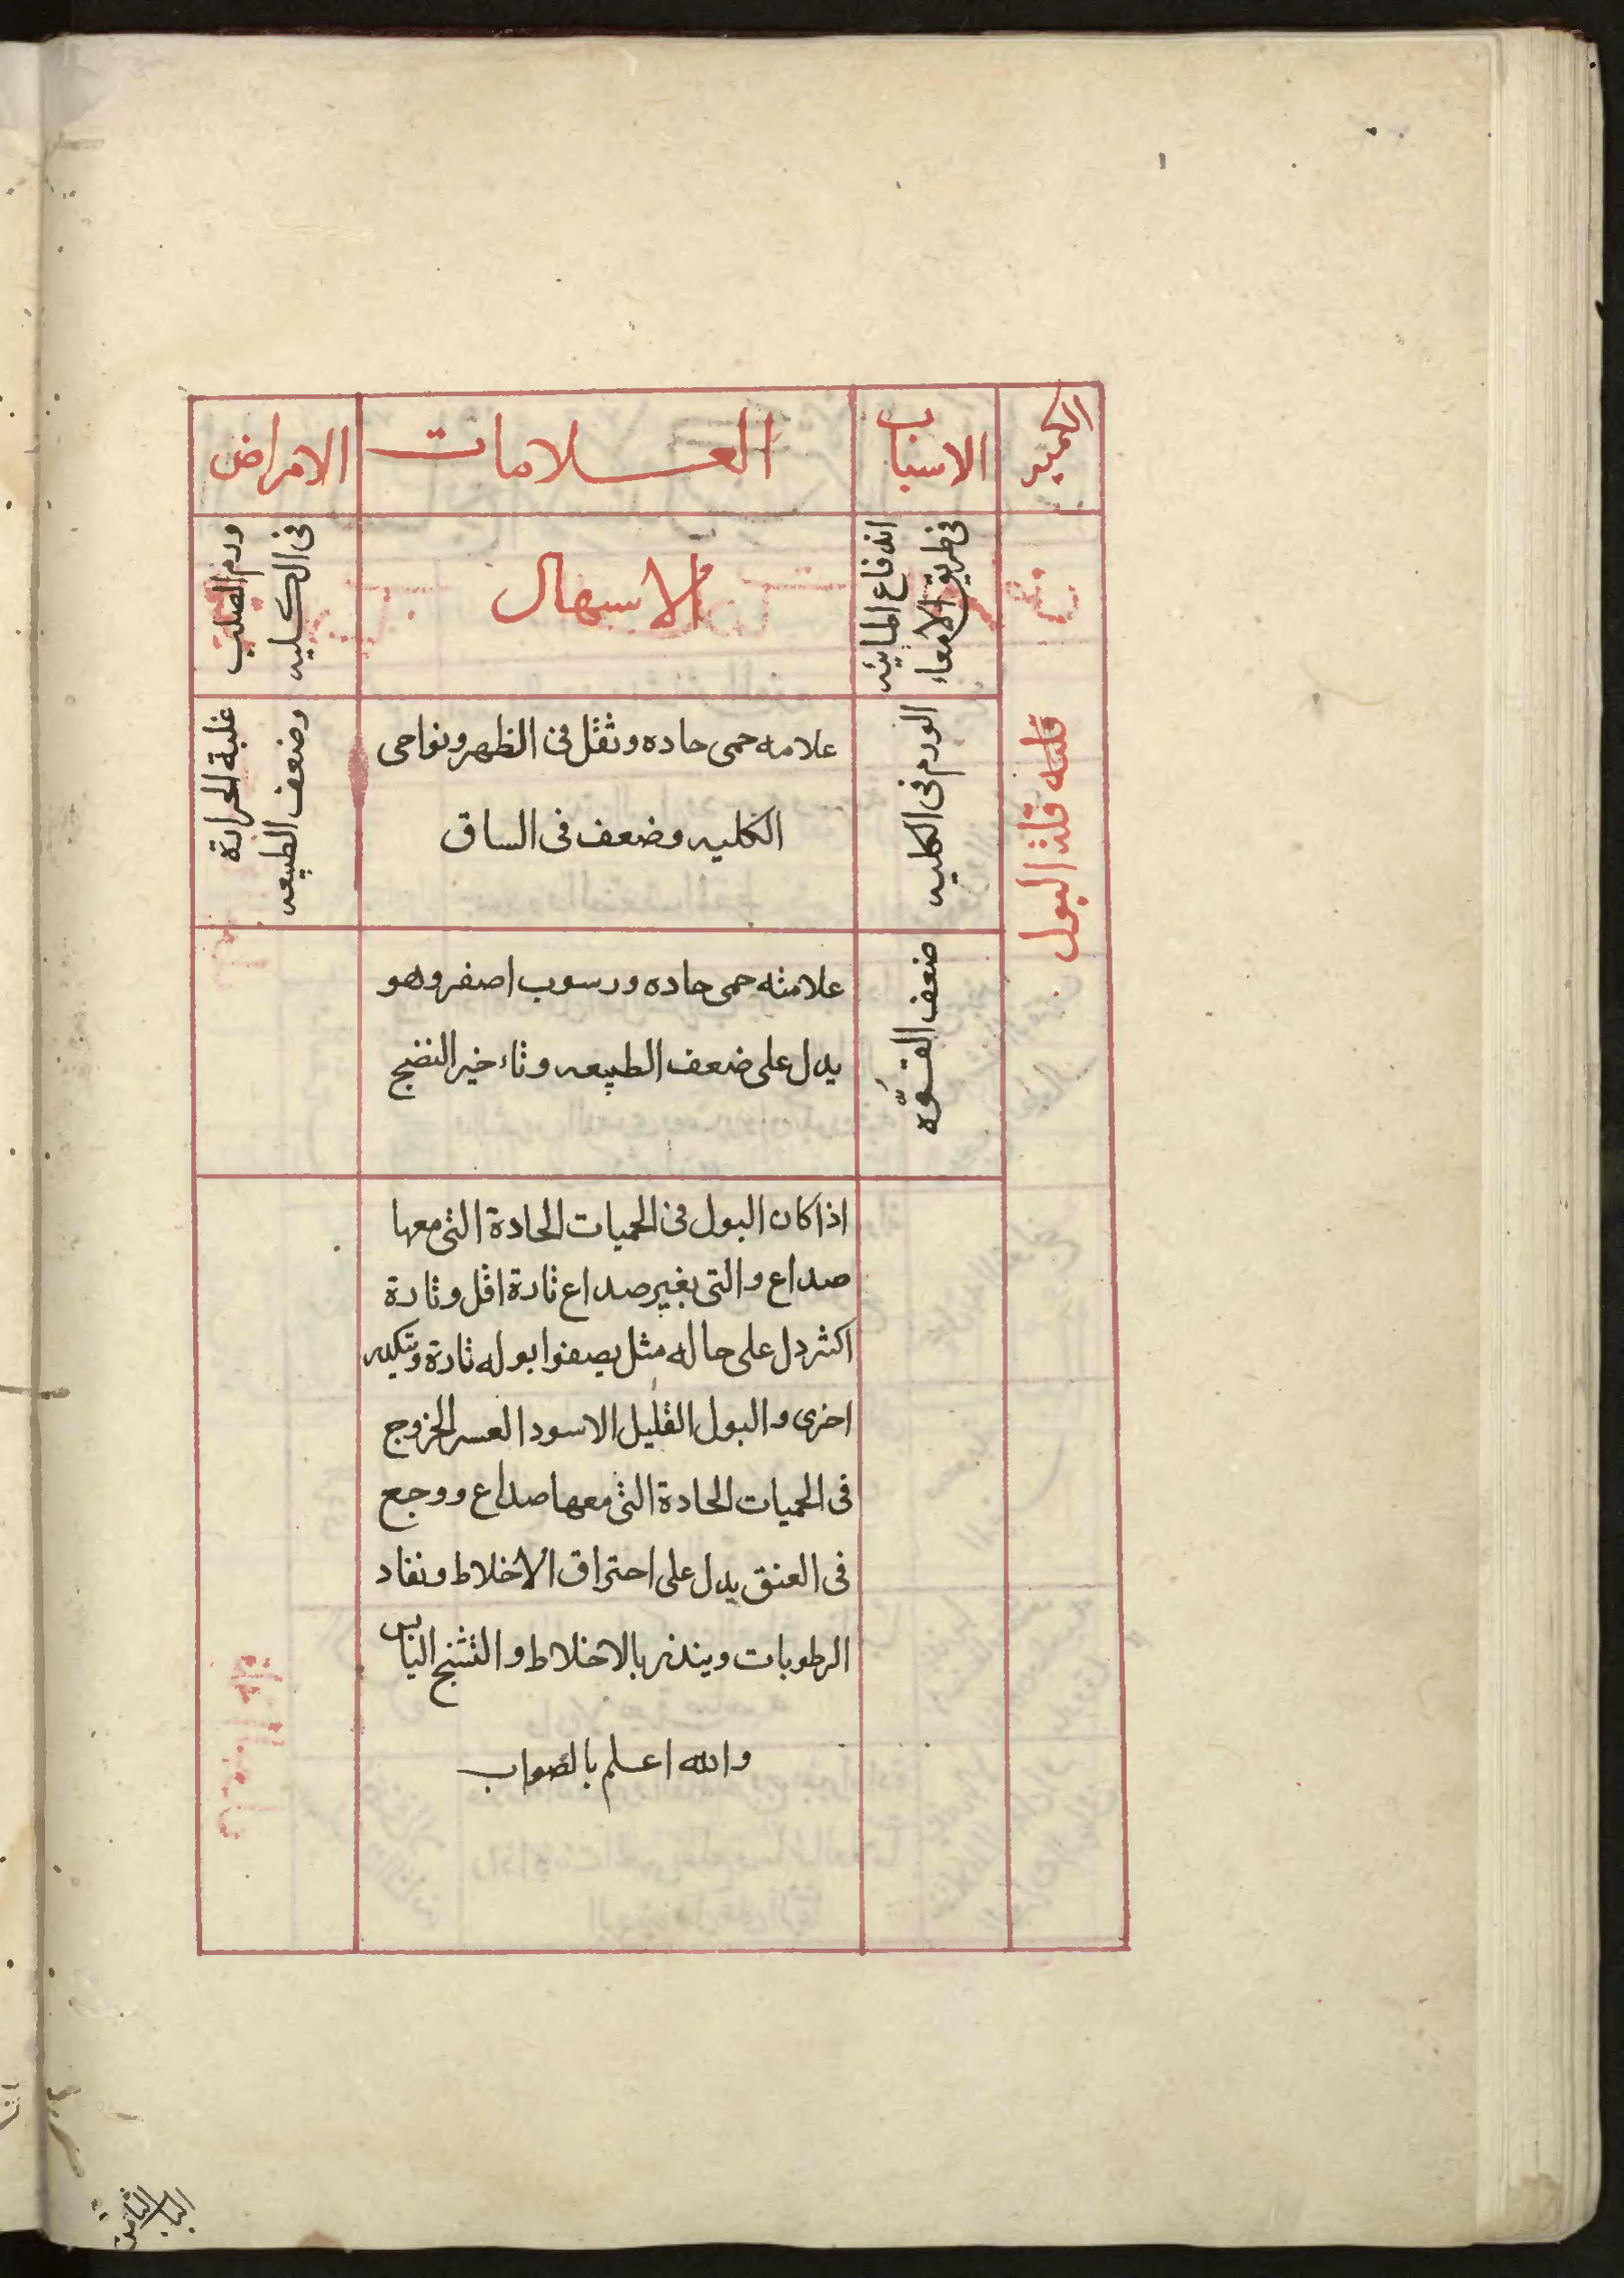 الكمية
الاسباب
العلامات
الامراض
قلة البول
اندفاع المائيه
في طريق الامعاء
الاسهال
ورم الصلب
فى الكليه
الورم فى الكليه
علامه حمى حاده وثقل فى الظهر ونواحى
الكليه وضعف فى الساق
غلبة الحرارة
وضعف الطبيعه
ضعف القوّه
علامته حمى حاده ورسوب اصفر وهو
يدل على ضعف الطبيعه وتاءخير النضج
اذا كان البول فى الحميات الحادة التى معها
صداع والتى بغير صداع تارة اقل وتارة
اكثر دل على حاله مثل يصفوا بوله تارة
اخرى والبول القليل الاسود العسر الخروج
فى الحميات الحادة التى معها صداع ووجع
فى العنق يدل على احتراق الاخلاط ونفاد
الرطوبات وينذر بالاختلاط والتشنج اليابس
والله اعلم بالصواب
الباب الثامن